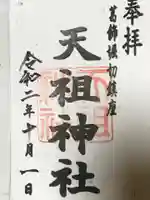 奉拝
葛飾堀切鎮座
天祖神社
令和二年十月一日